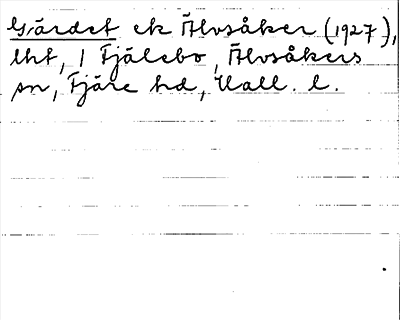 Gärdet ek Älvsåker (1927),
lht, 1 Fjälebo, Älvsåkers
sn, Fjäre hd, Hall. l.